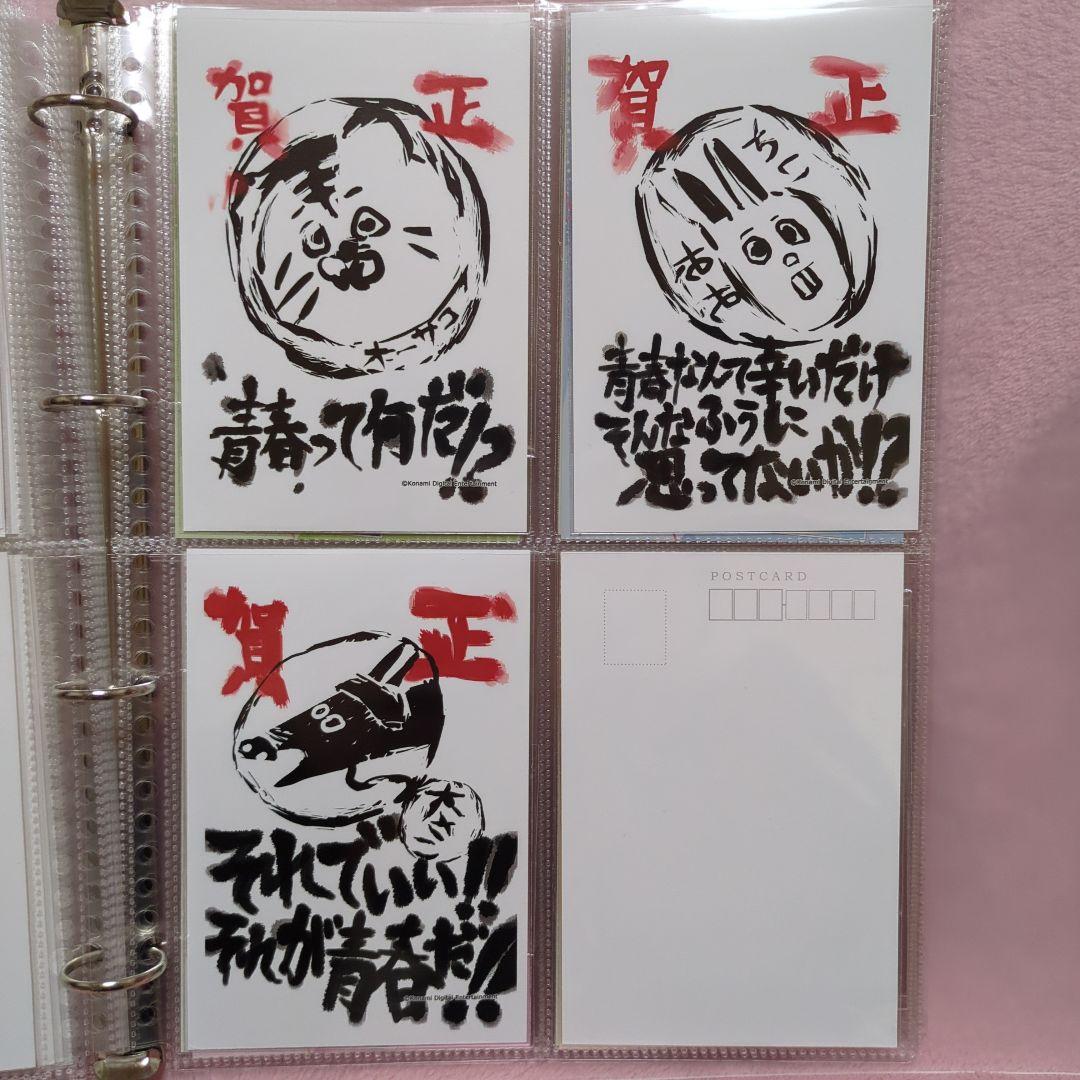 賀正
コナー大
青春って何だ!?
©Konami Digital Entertainment
賀正
ちい
ねそ
青春なんて辛いだけ
そんなふうに
思ってないか!!?
©Konami Digital Entertainment
賀正
それでいい!!
それが青春だ!!
©Konami Digital Entertainment
POSTCARD